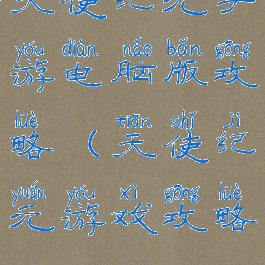 天使纪元手
yóu diàn nǎo bǎn gōng
游电脑版攻
lüè tiān shǐ jì
略（天使纪
yuán yóu xì gōng lüè
元游戏攻略